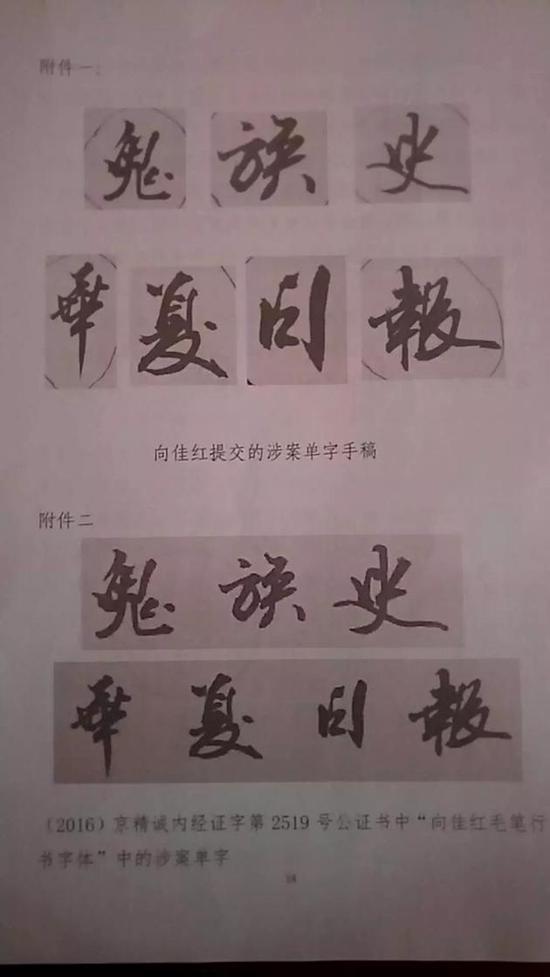 附件一：
鬼 族 史
華 夏 日 報
向佳红提交的涉案单字手稿
附件二
鬼 族 史
華 夏 日 報
（2016）京精诚内经证字第 2519 号公证书中“向佳红毛笔行
书字体”中的涉案单字